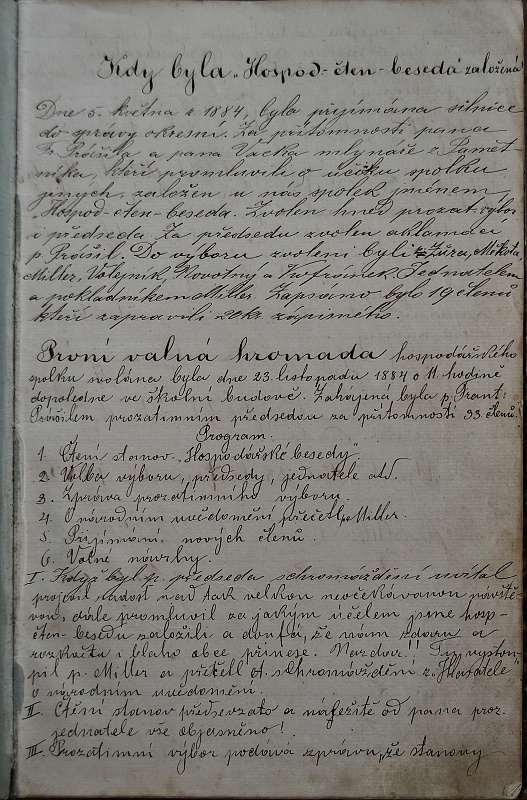 Kdy byla „Hospod-čten-beseda" založena
Dne 5. května r 1884, byla přejímána silnice
do správy okresní. Za přítomnosti pana
Fr. Prášila a pana Vacka mlynáře z Pamět
níka, kteří promluvili o účelu spolku
jiných, založen u nás spolek jménem
„Hospod-čten-beseda. Zvolen hned prozat. výbor
i předseda. Za předsedu zvolen aklamací
p. Prášil. Do výboru zvoleni byli Zůza, Mikota,
Miller, Volejník, Novotný a Vofránek. Jednatelem
a pokladníkem Miller. Zapsáno bylo 19 členů
kteří zapravili 20 kr. zápisného.
První valná hromada hospodářského
spolku svolána byla dne 23. listopadu 1884 o 11 hodině
dopoledne ve školní budově. Zahájena byla p. Frant:
Prášilem prozatimním předsedou za přítomnosti 33 členů.
Program.
1. Čtení stanov „Hospodářské besedy".
2. Volba výboru, předsedy, jednatele atd.
3. Zpráva prozatimního výboru.
4. O národním uvědomění přečetl p. Miller.
5. Přijímání nových členů.
6. Volné návrhy.
I. Když byl p. předseda schromáždění uvítal
projevil radost nad tak velkou neočekávanou návště-
vou, dále promluvil za jakým účelem jsme hosp-
čten-besedu založili a doufá, že nám zdaru a
rozkvětu i blaho obce přinese. Nazdar!! Pak vystou-
pil p. Miller a přečetl ct. schromáždění z „Hlasatele"
o národním uvědomění.
II. Čtení stanov předsevzato a náležitě od pana proz.
jednatele vše objasněno!
III. Prozatimní výbor podává zprávu, že stanovy